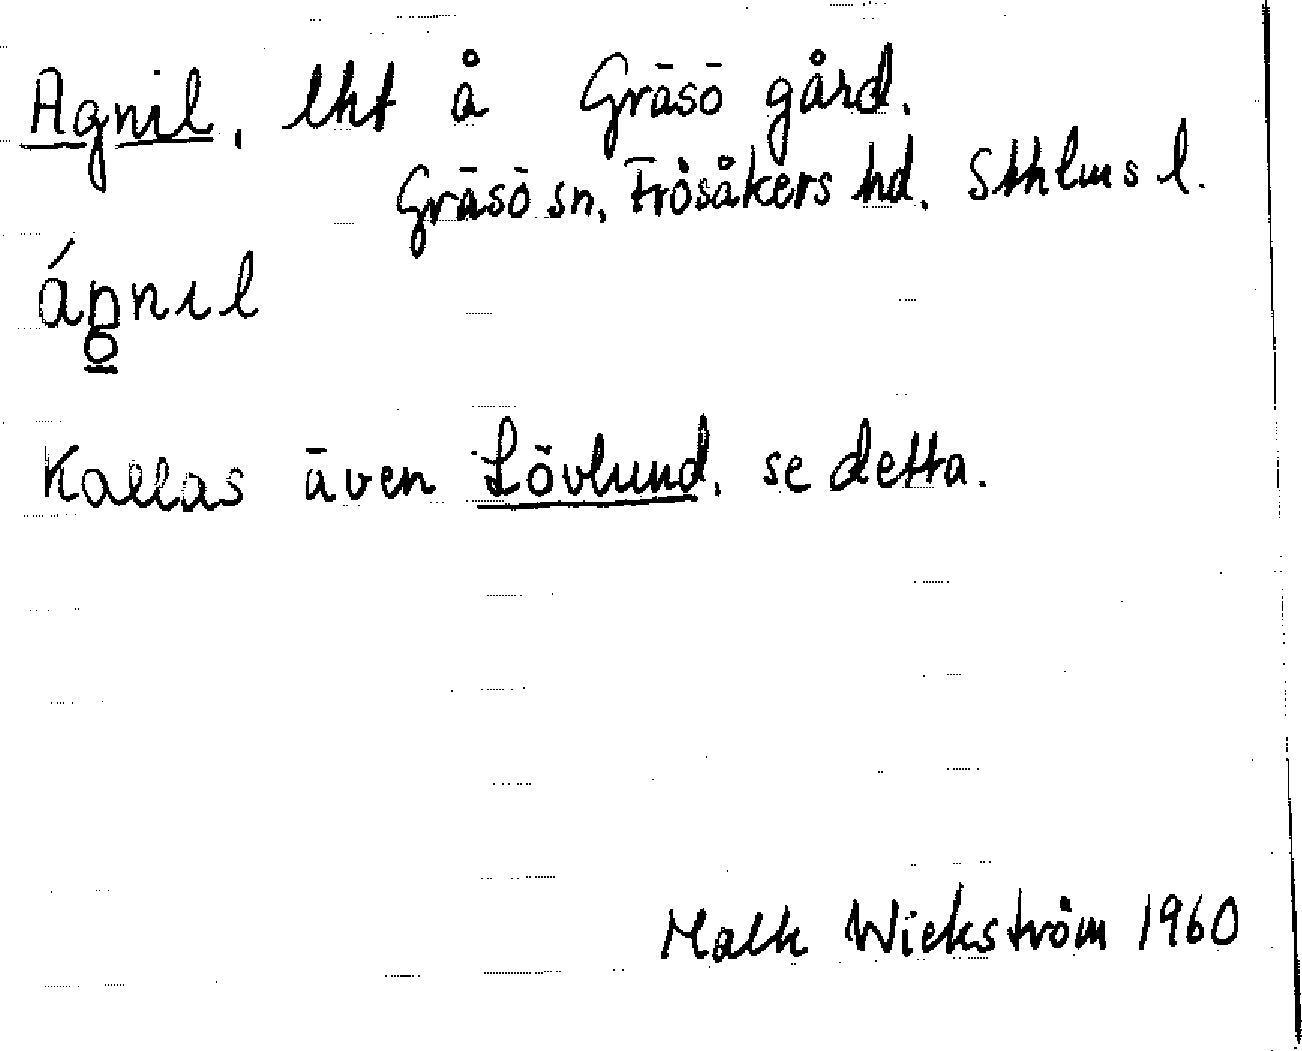 Agnil, lht å Gräsö gård.
Gräsö sn, Frösåkers hd. Sthlms l.
áŋnıl
Kallas även Lövlund, se detta.
Wickström 1960